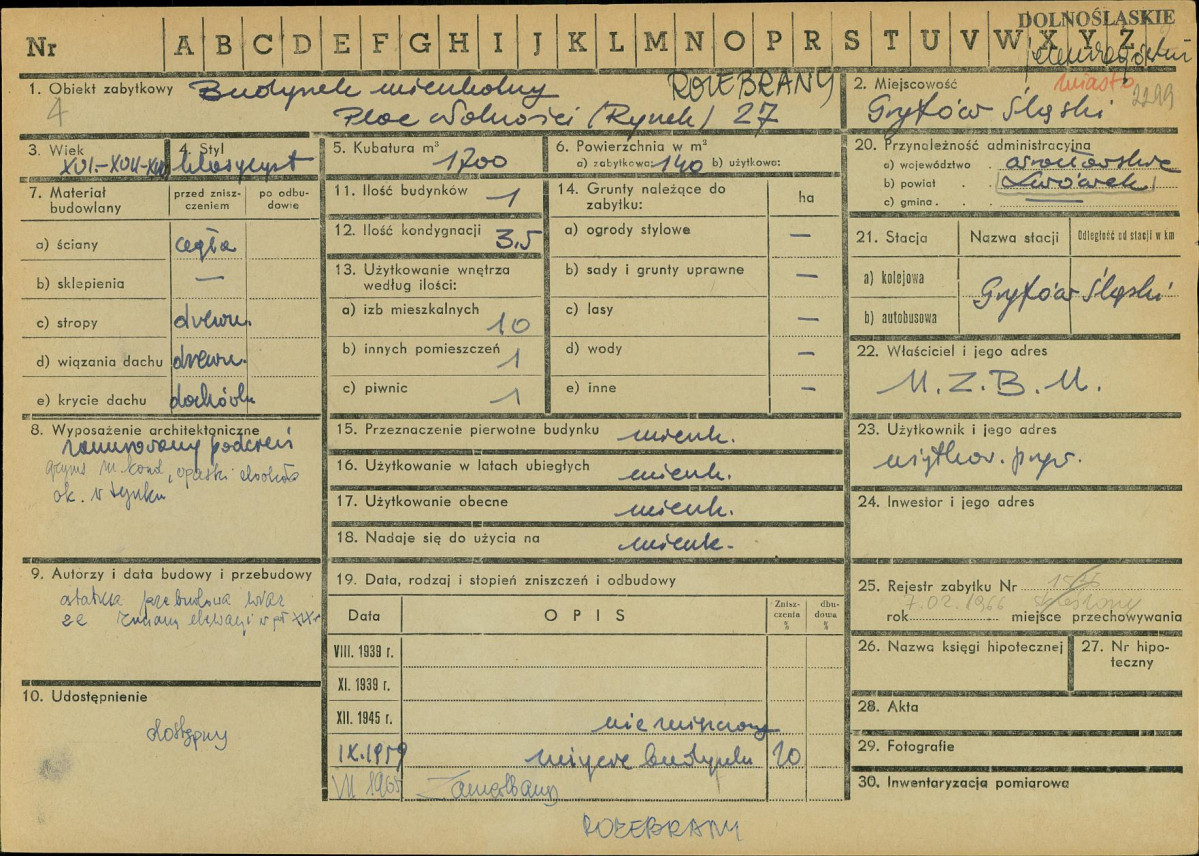 DOLNOŚLĄSKIE
Nr A B C D E F G H I J K L M N O P R S T U V W X Y Z
1. Obiekt zabytkowy Budynek mieszkalny ROZEBRANY
4 Plac Wolności (Rynek) 27
2. Miejscowość miasto 2299
Gryfów Śląski
3. Wiek
XVI-XVII-XIX
4. Styl
klasycyst
5. Kubatura m³ 1700
6. Powierzchnia w m²
a) zabytkowa: 140 b) użytkowo:
20. Przynależność administracyjna
a) województwo wrocławskie
b) powiat Lwówek
c) gmina
7. Materiał budowlany
przed zniszczeniem
po odbudowie
a) ściany cegła
b) sklepienia —
c) stropy drewn.
d) wiązania dachu drewn.
e) krycie dachu dachówk
11. Ilość budynków 1
12. Ilość kondygnacji 3,5
13. Użytkowanie wnętrza
według ilości:
a) izb mieszkalnych 10
b) innych pomieszczeń 1
c) piwnic 1
14. Grunty należące do
zabytku: ha
a) ogrody stylowe —
b) sady i grunty uprawne —
c) lasy —
d) wody —
e) inne —
21. Stacja Nazwa stacji Odległość od stacji w km
a) kolejowa
Gryfów Śląski
b) autobusowa
22. Właściciel i jego adres
M.Z.B.M.
8. Wyposażenie architektoniczne
zamurowany podcień
gzyms m. kond, opaski dookoła
ok. w tynku
15. Przeznaczenie pierwotne budynku mieszk.
16. Użytkowanie w latach ubiegłych mieszk.
17. Użytkowanie obecne mieszk.
18. Nadaje się do użycia na mieszk.
23. Użytkownik i jego adres
użytkow. pryw.
24. Inwestor i jego adres
9. Autorzy i data budowy i przebudowy
ostatnia przebudowa wraz
ze zmianą elewacji w poł XIX w
10. Udostępnienie
dostępny
19. Data, rodzaj i stopień zniszczeń i odbudowy
Data OPIS Zniszczenia % dbudowa %
VIII. 1939 r.
XI. 1939 r.
XII. 1945 r. nie zniszczony
IX.1959 zużycie budynku 20
VII 1965
ROZEBRANY
25. Rejestr zabytku Nr
7.02.1966 skreślony
rok miejsce przechowywania
26. Nazwa księgi hipotecznej
27. Nr hipoteczny
28. Akta
29. Fotografie
30. Inwentaryzacja pomiarowa